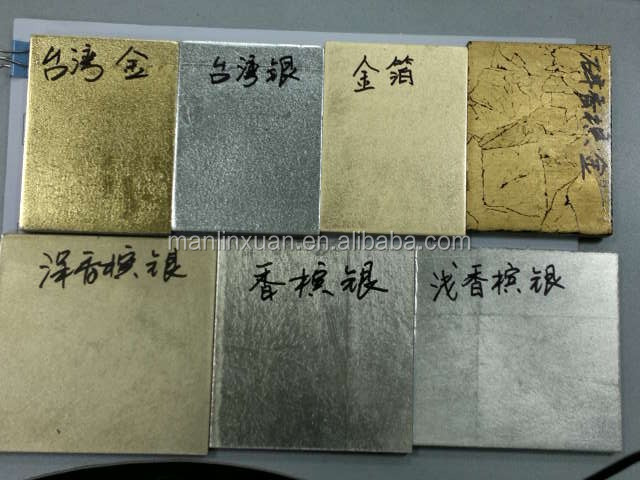 台湾金
台湾银
金箔
香槟金
manlinxuan.en.alibaba.com
深香槟银
香槟银
浅香槟银